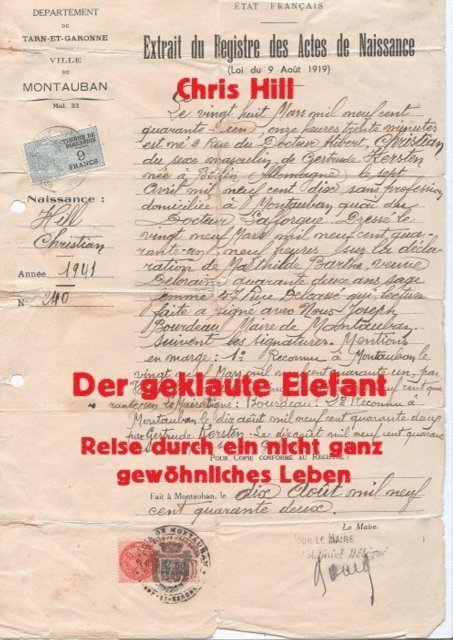 ÉTAT FRANÇAIS
DÉPARTEMENT
DE
TARN-ET-GARONNE
VILLE
DE
MONTAUBAN
Mod. 33
Extrait du Registre des Actes de Naissance
(Loi du 9 Août 1919)
Chris Hill
9
FRANCS
Naissance :
Hill
Christian
Année 1941
N° 240
Le vingt huit Mars mil neuf cent
quarante un, onze heures trente minutes
est né 2 Rue du Docteur Alibert, Christian
du sexe masculin, de Gertrude Kersten
née à Berlin (Allemagne) le sept
Avril mil neuf cent dix sans profession
domiciliée à Montauban quai du
Docteur Lafforgue. Dressé le
vingt neuf Mars mil neuf cent qua-
rante-un, neuf heures sur la décla-
ration de Mathilde Barthe, veuve
Delorain quarante deux ans sage
femme 42 Rue Delcassé qui, lecture
faite a signé avec Nous Joseph
Bourdeau Maire de Montauban.
Suivent les signatures. Mentions
en marge : 1° Reconnu à Montauban le
vingt Mars mil neuf cent quarante un, par
Der geklaute Elefant
Bourdeau : 2° Reconnu à
Montauban le dix août mil neuf cent quarante deux
par Gertrude Kersten. Le dix août mil neuf cent quarante
Reise durch ein nicht ganz
gewöhnliches Leben
POUR COPIE CONFORME AU REGISTRE :
Fait à Montauban, le dix Août mil neuf
cent quarante deux.
Le Maire,
POUR LE MAIRE
L'Adjoint Délégué
DE MONTAUBAN